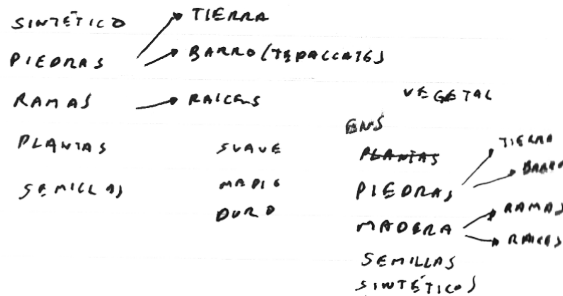 SINTÉTICO
PIEDRAS
RAMAS
PLANTAS
SEMILLAS
TIERRA
BARRO (TEPALCATES)
RAICES
SUAVE
MEDIO
DURO
VEGETAL
PLANTAS
PIEDRAS
MADERA
SEMILLAS
SINTÉTICOS
TIERRA
BARRO
RAMAS
RAICES